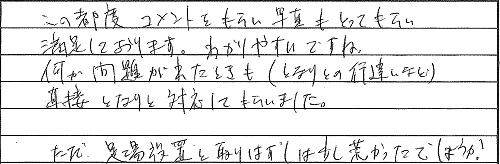 その都度 コメントをもらい写真もとってもらい
満足しております。わかりやすいですね。
何か問題がおきたときも(となりとの行違いなど)
直接となりと対応してもらいました。
ただ 足場設置と取りはずしは少し荒かったでしょうか?